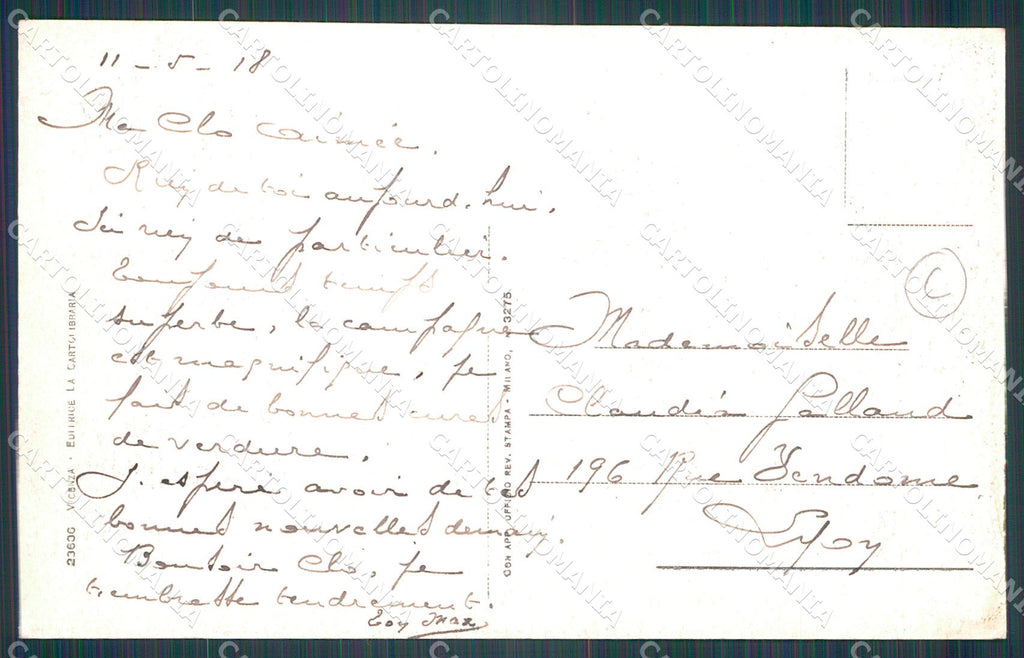 11-5-18
Ma Clo aimée.
Rien de toi aujourd'hui.
Ici rien de particulier.
Toujours temps
superbe, la campagne
est magnifique, je
fais de bonnes cures
de verdure.
J'espère avoir de tes
bonnes nouvelles demain.
Bonsoir Clo, je
t'embrasse tendrement.
Ton Max
Mademoiselle
Claudia Galland
196 Rue Vendome
Lyon
23636 VICENZA - EDITRICE LA CARTOLIBRARIA
CON APP. UFFICIO REV. STAMPA - MILANO, N. 3275
CARTOLINOMANIA